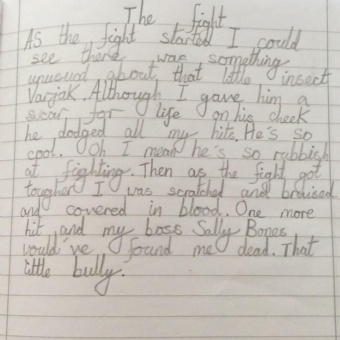 The fight
As the fight started I could
see there was something
unusual about that little insect
Varjak. Although I gave him a
scar for life on his cheek
he dodged all my hits. He's so
cool. Oh I mean he's so rubbish
at fighting. Then as the fight got
tougher I was scratched and bruised
and covered in blood. One more
hit and my boss Sally Bones
would've found me dead. That
little bully.